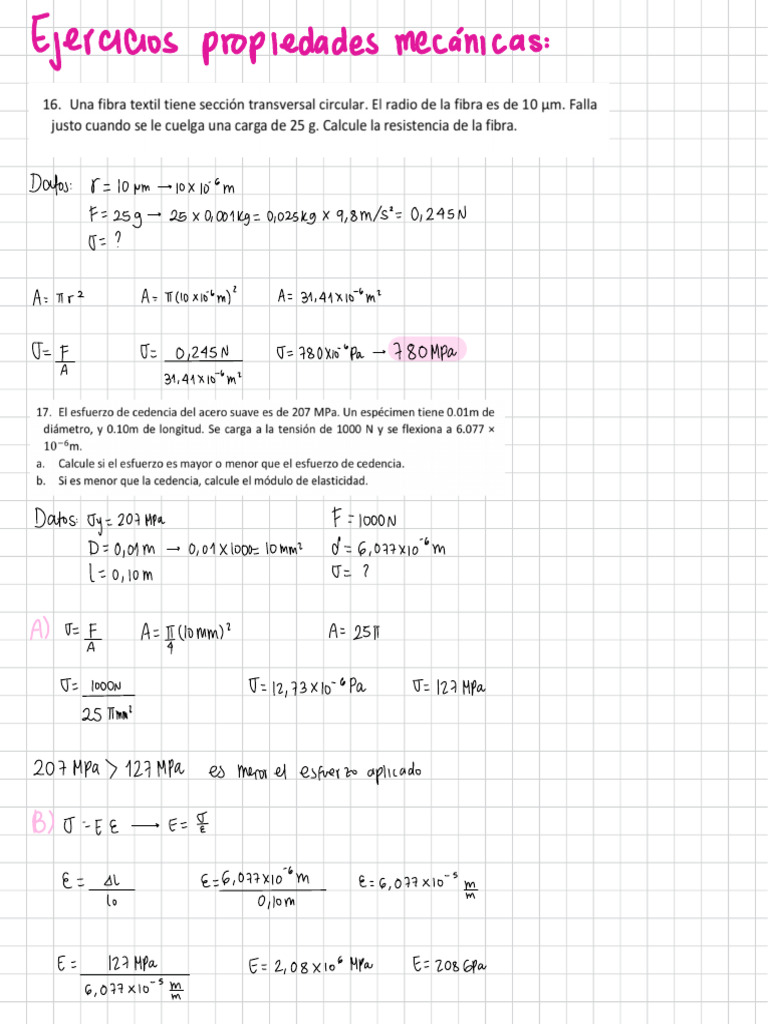 Ejercicios propiedades mecánicas:
16. Una fibra textil tiene sección transversal circular. El radio de la fibra es de 10 µm. Falla
justo cuando se le cuelga una carga de 25 g. Calcule la resistencia de la fibra.
Datos: r = 10 µm → 10 x 10⁻⁶ m
F = 25g → 25 x 0,001 kg = 0,025kg x 9,8 m/s² = 0,245 N
σ = ?
A = π r² A = π(10 x 10⁻⁶ m)² A = 31,41 x 10⁻⁶ m²
σ = F/A σ = 0,245 N / 31,41 x 10⁻⁶ m² σ = 780 x 10⁻⁶ Pa → 780 MPa
17. El esfuerzo de cedencia del acero suave es de 207 MPa. Un espécimen tiene 0.01m de
diámetro, y 0.10m de longitud. Se carga a la tensión de 1000 N y se flexiona a 6.077 ×
10⁻⁶m.
a. Calcule si el esfuerzo es mayor o menor que el esfuerzo de cedencia.
b. Si es menor que la cedencia, calcule el módulo de elasticidad.
Datos: σy = 207 MPa F = 1000 N
D = 0,01 m → 0,01 x 1000 = 10 mm² d = 6,077 x 10⁻⁶ m
l = 0,10 m σ = ?
A) σ = F/A A = π/4 (10 mm)² A = 25 π
σ = 1000N / 25 π mm² σ = 12,73 x 10⁻⁶ Pa σ = 127 MPa
207 MPa > 127 MPa es menor el esfuerzo aplicado
B) σ = E ε → E = σ/ε
ε = Δl / l₀ ε = 6,077 x 10⁻⁶ m / 0,10 m ε = 6,077 x 10⁻⁵ m/m
E = 127 MPa / 6,077 x 10⁻⁵ m/m E = 2,08 x 10⁶ MPa E = 208 GPa